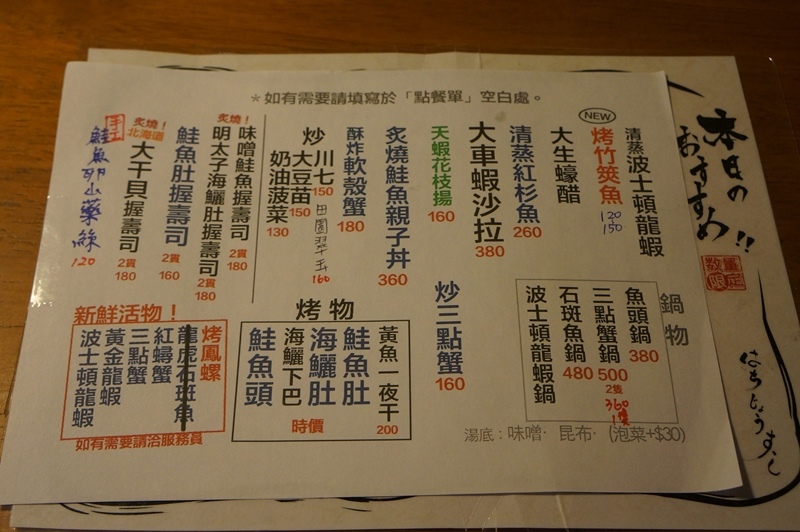 ＊如有需要請填寫於「點餐單」空白處。
本日の
おすすめ!!
数量
限定
はちじょうすし
清蒸波士頓龍蝦
NEW
烤竹筴魚
120
150
大生蠔醋
清蒸紅杉魚
260
大車蝦沙拉
380
天蝦花枝揚
160
炙燒鮭魚親子丼
360
酥炸軟殼蟹
180
炒
川七
150
大豆苗
150
奶油菠菜
130
田園翠玉
160
炙燒！
味噌鮭魚握壽司
2貫
180
明太子海鱺肚握壽司
2貫
180
鮭魚肚握壽司
2貫
160
炙燒！
北海道
大干貝握壽司
2貫
180
手工
鮭魚卵山藥絲
120
鍋物
魚頭鍋
380
三點蟹鍋
500
2隻
360
1隻
石斑魚鍋
480
波士頓龍蝦鍋
湯底：味噌· 昆布· (泡菜+$30)
炒三點蟹
160
烤物
黃魚一夜干
200
鮭魚肚
海鱺肚
海鱺下巴
鮭魚頭
時價
新鮮活物！
烤鳳螺
龍虎石斑魚
紅蟳蟹
三點蟹
黃金龍蝦
波士頓龍蝦
如有需要請洽服務員